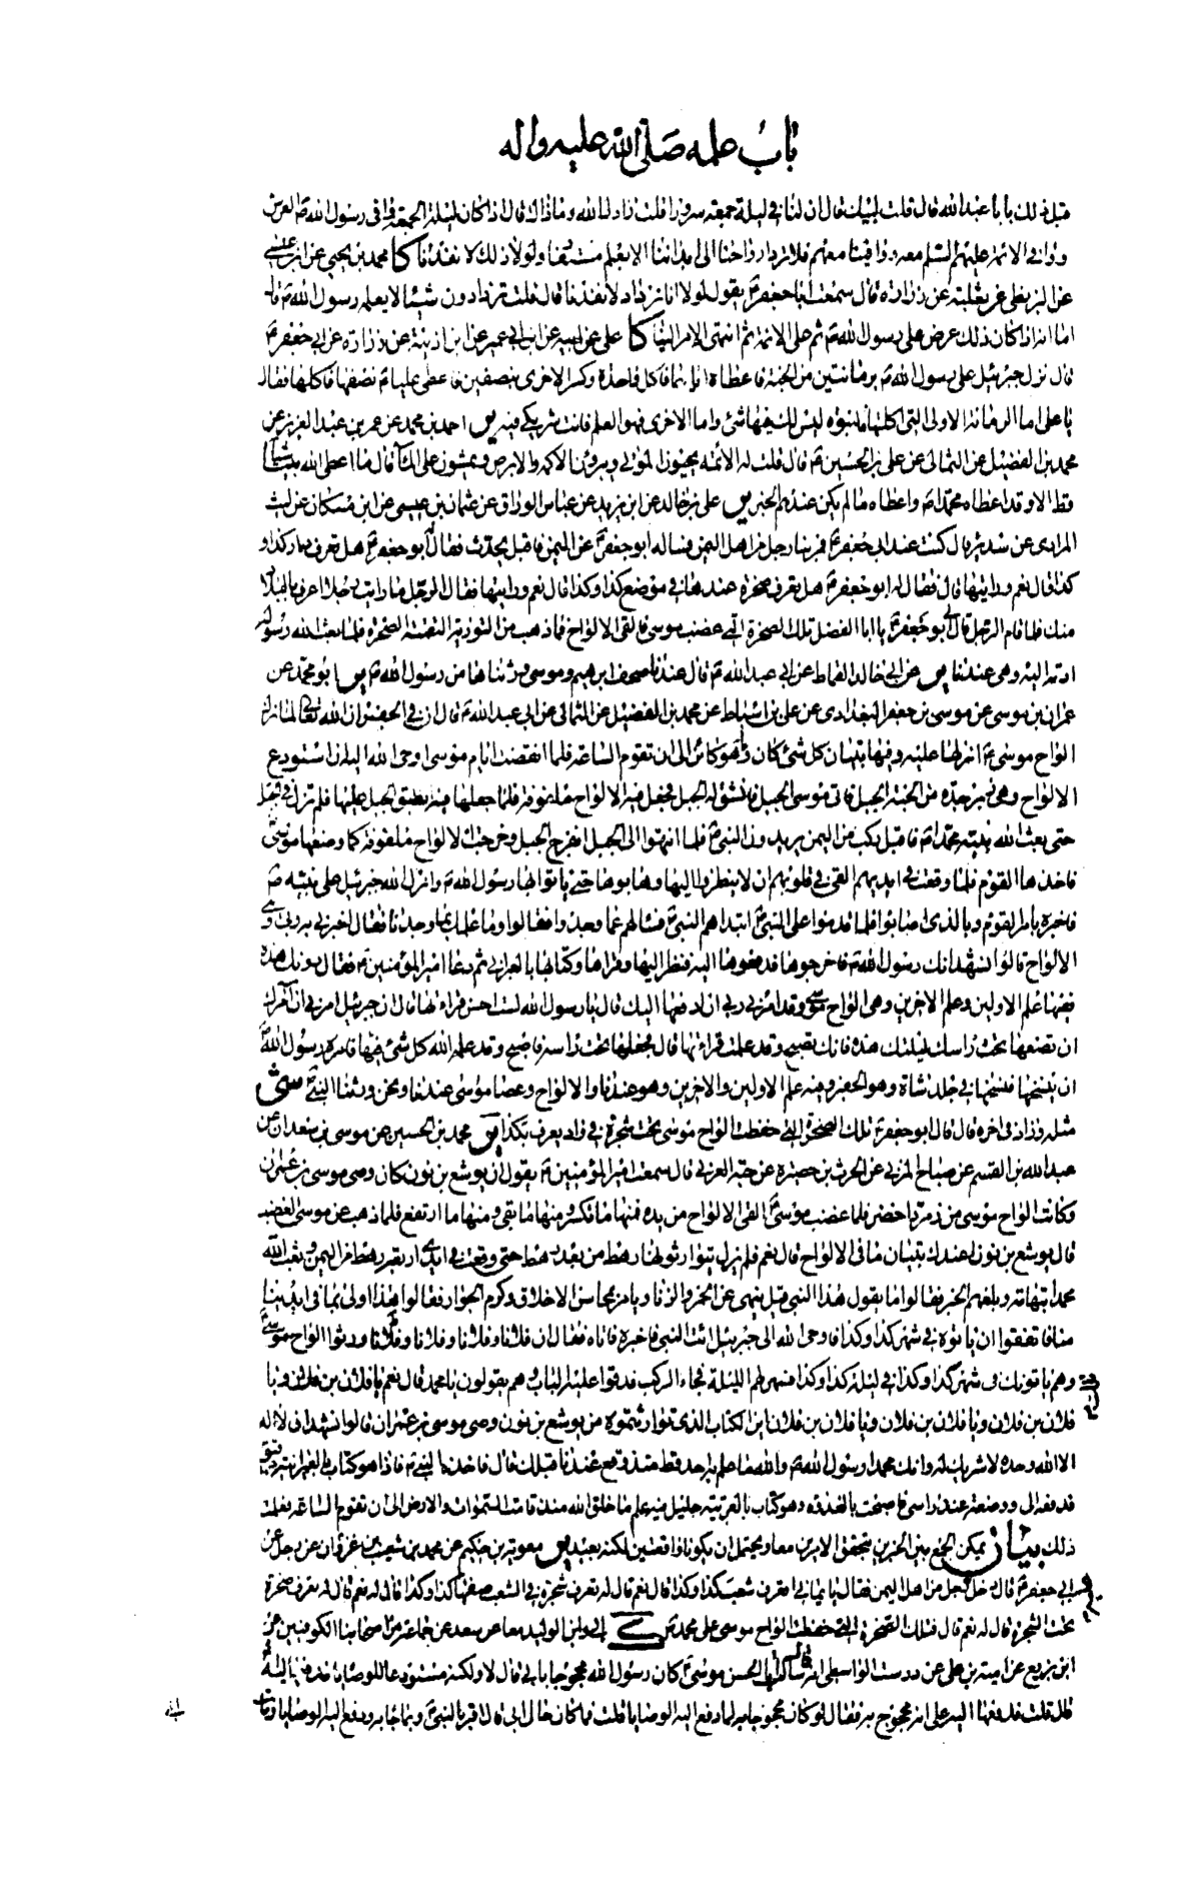 باب علمه صلى الله عليه واله
قبل ذلك يا با عبد الله قال قلت لبيك قال ان لنا في ليلة جمعة سرورا قلت زادك الله وما ذاك قال اذا كان ليلة الجمعة وافى رسول الله ص العرش
ووافى الائمة عليهم السلم معه ووافينا معهم فلا ترد ارواحنا الى ابداننا الا بعلم مستفاد ولولا ذلك لا نفدنا كا محمد بن يحيى عن ابن عيسى
عن البزنطي عن ثعلبة عن زرارة قال سمعت ابا جعفر ع يقول لولا انا نزداد لانفدنا قال قلت تزدادون شيئا لا يعلمه رسول الله ص قال
اما انه اذا كان ذلك عرض على رسول الله ص ثم على الائمة ثم انتهى الامر الينا كا علي عن ابيه عن ابن ابي عمير عن ابن اذينة عن زرارة عن ابي جعفر ع
قال نزل جبرئيل على رسول الله ص برمانتين من الجنة فاعطاه اياهما فاكل واحدة وكسر الاخرى بنصفين فاعطى عليا ع نصفها فاكلها فقال
يا علي اما الرمانة الاولى التي اكلتها فالنبوة ليس لك فيها شئ واما الاخرى فهو العلم فانت شريكي فيه ير احمد بن محمد عن عمر بن عبد العزيز عن
محمد بن الفضيل عن الثمالي عن علي بن الحسين ع قال قلت له الائمة يحيون الموتى ويبرؤن الاكمه والابرص ويمشون على الماء قال ما اعطى الله نبيا شيئا
قط الا وقد اعطاه محمدا ص واعطاه ما لم يكن عندهم الخبر ير علي بن خالد عن ابن يزيد عن عباس الوراق عن عثمان بن عيسى عن ابن مسكان عن ليث
المرادي عن سدير قال كنت عند ابي جعفر ع فمر بنا رجل من اهل اليمن فساله ابو جعفر ع عن اليمن فاقبل يحدث فقال له ابو جعفر ع هل تعرف دار كذا و
كذا قال نعم ورايتها قال فقال له ابو جعفر ع هل تعرف صخرة عندها في موضع كذا وكذا قال نعم ورايتها فقال الرجل ما رايت رجلا اعرف بالبلاد
منك فلما قام الرجل قال لي ابو جعفر ع يا ابا الفضل تلك الصخرة التي غضب موسى فالقى الالواح فما ذهب من التورية التقمته الصخرة فلما بعث الله رسوله
ادته اليه وهي عندنا ير عن ابي خالد القماط عن ابي عبد الله ع قال عندنا صحف ابرهيم وموسى ورثناها من رسول الله ص ير ابو محمد عن
عمران بن موسى عن موسى بن جعفر البغدادي عن علي بن اسباط عن محمد بن الفضيل عن الثمالي عن ابي عبد الله ع قال ان في الجفر ان الله تعالى لما انزل
الواح موسى ع انزلها عليه وفيها تبيان كل شئ كان وهو كائن الى ان تقوم الساعة فلما انقضت ايام موسى اوحى الله اليه ان استودع
الالواح وهي زبرجدة من الجنة الجبل فاتى موسى الجبل فانشق له الجبل فجعل فيه الالواح ملفوفة فلما جعلها فيه انطبق الجبل عليها فلم تزل في الجبل
حتى بعث الله نبيه محمدا ص فاقبل ركب من اليمن يريدون النبي ص فلما انتهوا الى الجبل انفرج الجبل وخرجت الالواح ملفوفة كما وضعها موسى ع
فاخذها القوم فلما وقعت في ايديهم القي في قلوبهم ان لا ينظروا اليها وهابوها حتى ياتوا بها رسول الله ص وانزل الله جبرئيل على نبيه ص
فاخبره بامر القوم وبالذي اصابوا فلما قدموا على النبي ص ابتداهم النبي ص فسالهم عما وجدوا فقالوا وما علمك بما وجدنا فقال اخبرني به ربي وهي
الالواح قالوا نشهد انك رسول الله ص فاخرجوها فدفعوها اليه فنظر اليها وقراها وكتابها بالعبراني ثم دعا امير المؤمنين ع فقال دونك هذه
ففيها علم الاولين وعلم الاخرين وهي الواح موسى وقد امرني ربي ان ادفعها اليك قال يا رسول الله لست احسن قراءتها قال ان جبرئيل امرني ان آمرك
ان تضعها تحت راسك ليلتك هذه فانك تصبح وقد علمت قراءتها قال فجعلها تحت راسه فاصبح وقد علمه الله كل شئ فيها فامره رسول الله ص
ان ينسخها فنسخها في جلد شاة وهو الجفر وفيه علم الاولين والاخرين وهو عندنا والالواح وعصا موسى عندنا ونحن ورثنا النبي ص شى
مثله وزاد في اخره قال قال ابو جعفر ع تلك الصخرة التي حفظت الواح موسى تحت شجرة في واد يعرف بكذا ير محمد بن الحسين عن موسى بن سعدان عن
عبد الله بن القسم عن صباح المزني عن الحرث بن حصيرة عن حبة العرني قال سمعت امير المؤمنين ع يقول ان يوشع بن نون كان وصي موسى بن عمران
وكانت الواح موسى من زمرد اخضر فلما غضب موسى ع القى الالواح من يده فمنها ما تكسر ومنها ما بقي ومنها ما ارتفع فلما ذهب عن موسى الغضب
قال يوشع بن نون اعندك تبيان ما في الالواح قال نعم فلم يزل يتوارثونها رهط من بعد رهط حتى وقعت في ايدي اربعة رهط من اليمن وبعث الله
محمدا بتهامة وبلغهم الخبر فقالوا ما يقول هذا النبي قيل ينهى عن الخمر والزنا ويامر بمحاسن الاخلاق وكرم الجوار فقالوا هذا اولى بما في ايدينا
منا فاتفقوا ان ياتوه في شهر كذا وكذا فاوحى الله الى جبرئيل ائت النبي فاخبره فاتاه فقال ان فلانا وفلانا وفلانا وفلانا ورثوا الواح موسى ع
وهم ياتونك في شهر كذا وكذا في ليلة كذا وكذا فسهر لهم الليلة فجاء الركب فدقوا عليه الباب وهم يقولون يا محمد قال نعم يا فلان بن فلان ويا
فلان بن فلان ويا فلان بن فلان ويا فلان بن فلان اين الكتاب الذي توارثتموه من يوشع بن نون وصي موسى بن عمران قالوا نشهد ان لا اله
الا الله وحده لا شريك له وانك محمدا رسول الله ص والله ما علم به احد قط منذ وقع عندنا قبلك قال فاخذه النبي ص فاذا هو كتاب بالعبرانية دقيق
فدفعه الي ووضعته عند راسي فاصبحت بالغداة وهو كتاب بالعربية جليل فيه علم ما خلق الله منذ قامت السموات والارض الى ان تقوم الساعة فعلمت
ذلك بيان يمكن الجمع بين الخبرين بتحقق الامرين معا ويحتمل ان يكونا واقعتين لكنه بعيد ير معوية بن حكيم عن محمد بن شعيب بن غزوان عن رجل عن
ابي جعفر ع قال دخل رجل من اهل اليمن فقال يا يماني اتعرف شعب كذا وكذا قال نعم قال له تعرف شجرة في الشعب صفتها كذا وكذا قال له نعم قال له تعرف صخرة
تحت الشجرة قال له نعم قال فتلك الصخرة التي حفظت الواح موسى على محمد ص ك ابي وابن الوليد معا عن سعد عن جماعة من اصحابنا الكوفيين عن
ابن بزيع عن امية بن علي عن درست الواسطي انه سال ابا الحسن موسى ع كان رسول الله محجوجا بابي قال لا ولكنه مستودعا للوصايا فدفعها اليه ص
قال قلت فدفعها اليه على انه محجوج به فقال لو كان محجوجا به لما دفع اليه الوصايا قلت فما كان حال ابي قال اقر بالنبي ص وبما جاء به ودفع اليه الوصايا ومات